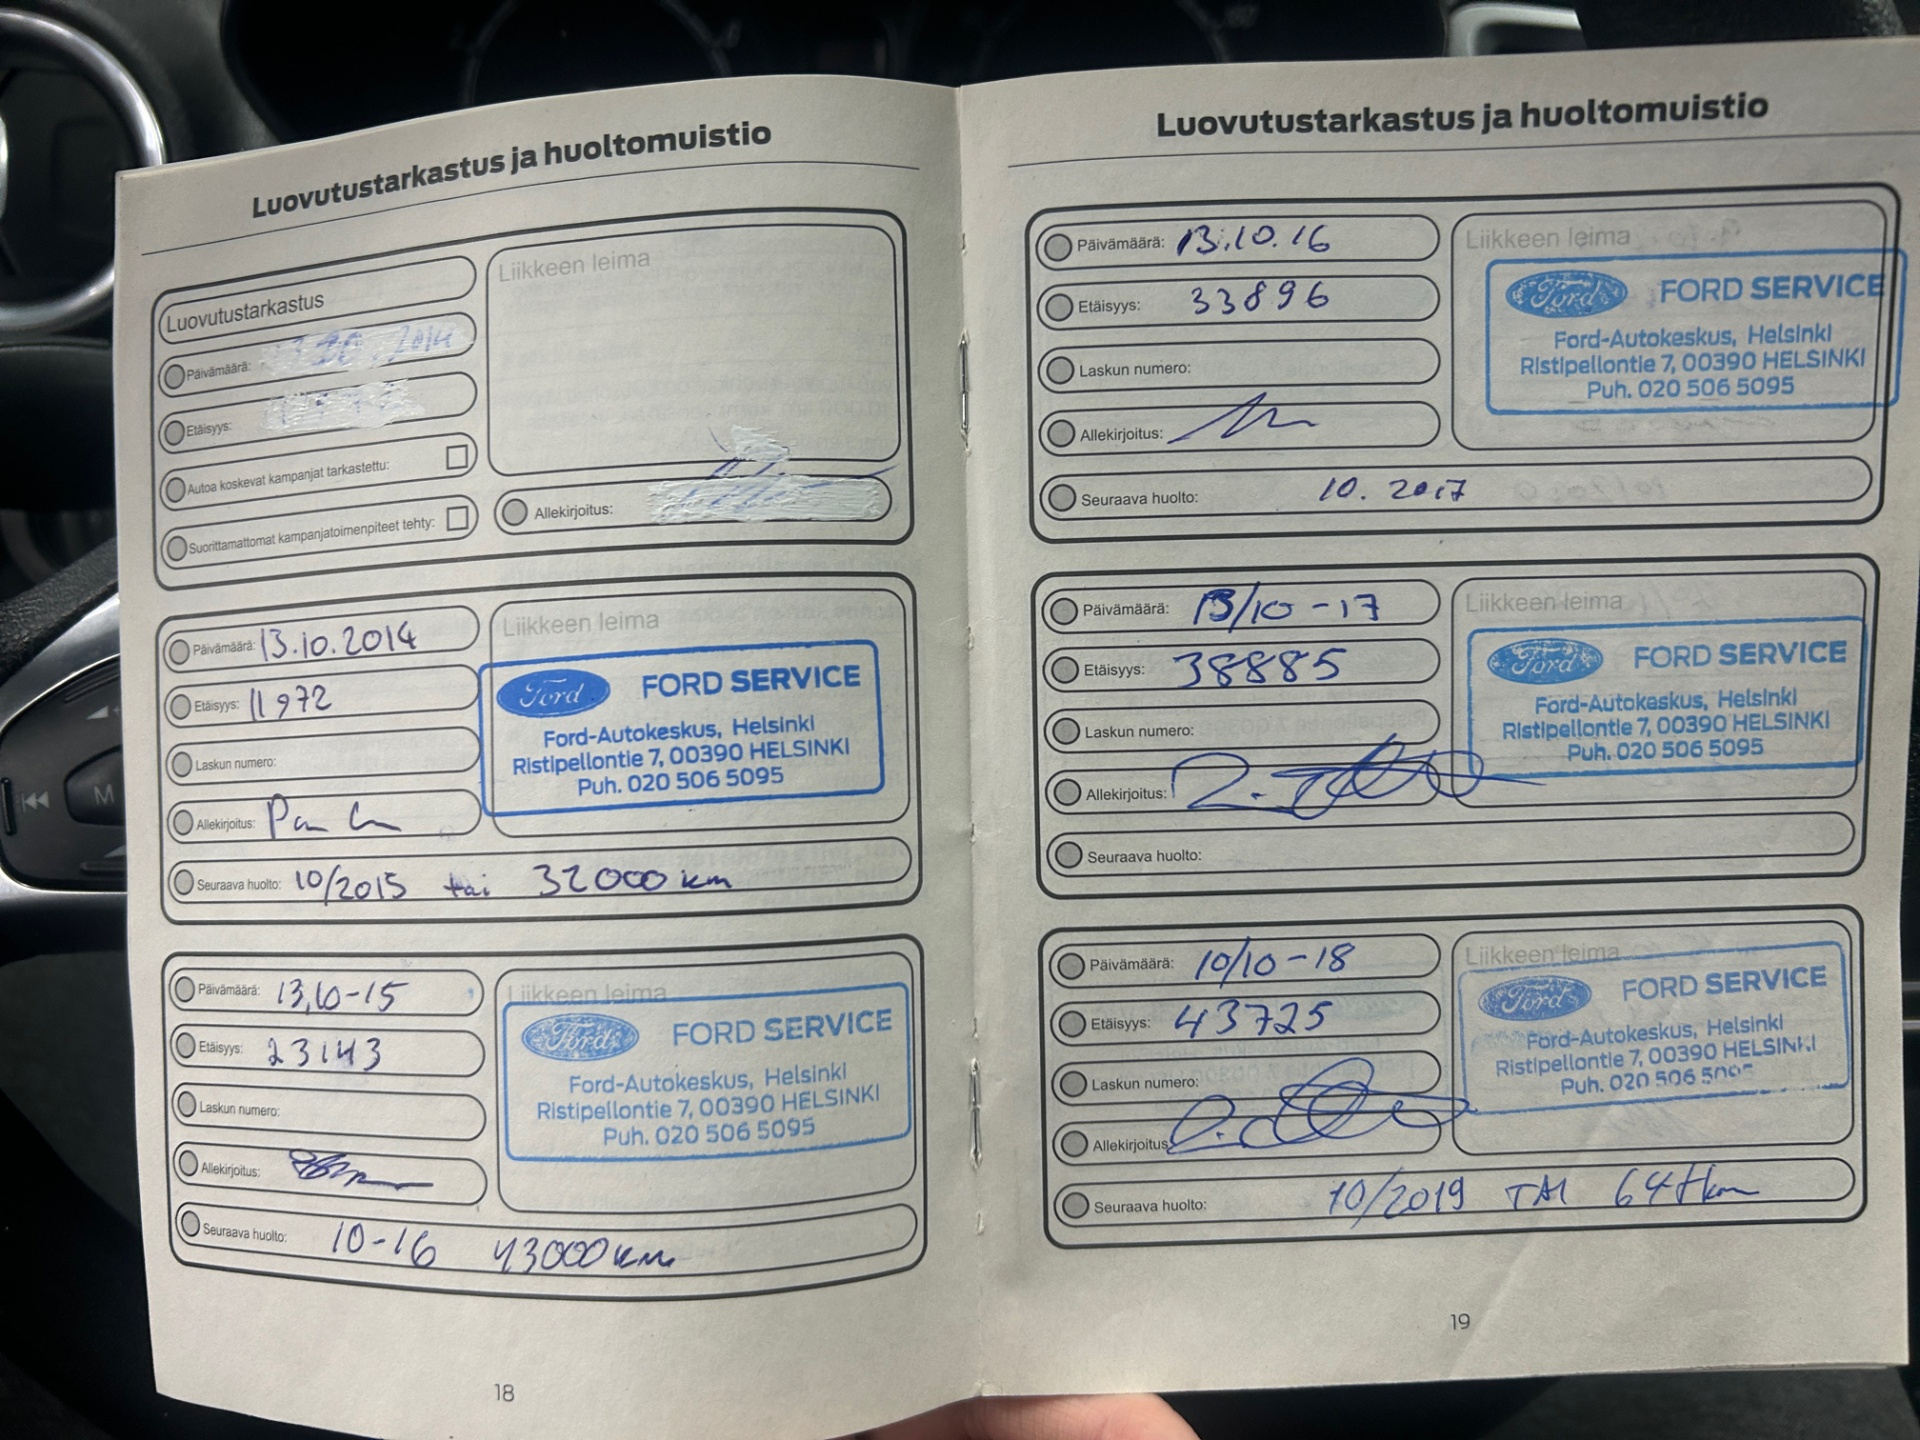 Luovutustarkastus ja huoltomuistio
Luovutustarkastus
Liikkeen leima
Päivämäärä: 2014
Etäisyys:
Autoa koskevat kampanjat tarkastettu:
Suorittamattomat kampanjatoimenpiteet tehty:
Allekirjoitus:
Päivämäärä: 13.10.2014
Etäisyys: 11972
Laskun numero:
Allekirjoitus:
Seuraava huolto: 10/2015 tai 32000 km
Liikkeen leima
Ford FORD SERVICE
Ford-Autokeskus, Helsinki
Ristipellontie 7, 00390 HELSINKI
Puh. 020 506 5095
Päivämäärä: 13,10-15
Etäisyys: 23143
Laskun numero:
Allekirjoitus:
Seuraava huolto: 10-16 43000 km
Liikkeen leima
Ford FORD SERVICE
Ford-Autokeskus, Helsinki
Ristipellontie 7, 00390 HELSINKI
Puh. 020 506 5095
18
Luovutustarkastus ja huoltomuistio
Päivämäärä: 13.10.16
Etäisyys: 33896
Laskun numero:
Allekirjoitus:
Seuraava huolto: 10.2017
Liikkeen leima
Ford FORD SERVICE
Ford-Autokeskus, Helsinki
Ristipellontie 7, 00390 HELSINKI
Puh. 020 506 5095
Päivämäärä: 13/10-17
Etäisyys: 38885
Laskun numero:
Allekirjoitus:
Seuraava huolto:
Liikkeen leima
Ford FORD SERVICE
Ford-Autokeskus, Helsinki
Ristipellontie 7, 00390 HELSINKI
Puh. 020 506 5095
Päivämäärä: 10/10-18
Etäisyys: 43725
Laskun numero:
Allekirjoitus:
Seuraava huolto: 10/2019 TAI 64tkm
Liikkeen leima
Ford FORD SERVICE
Ford-Autokeskus, Helsinki
Ristipellontie 7, 00390 HELSINKI
Puh. 020 506 5095
19
M